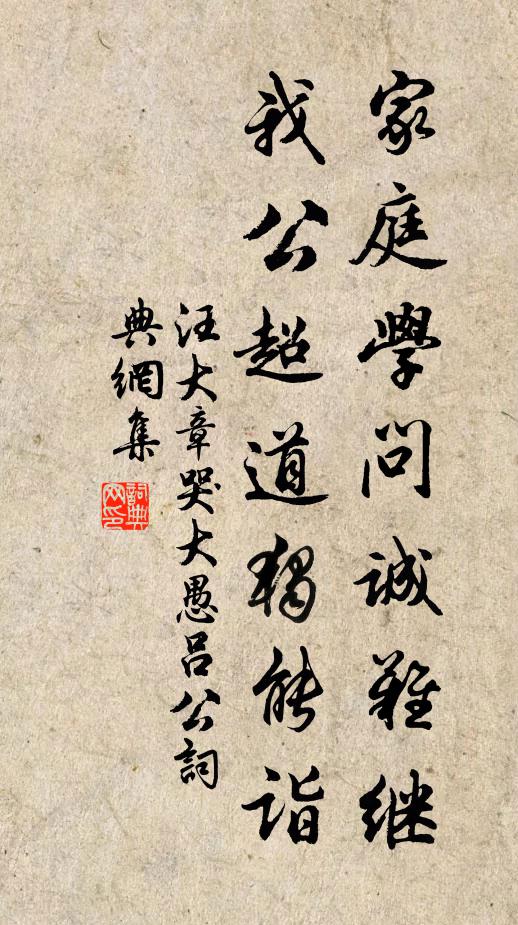 家庭學問誠難继
我公超道獨能詣
汪大章哭大愚吕公詞
典網集
詞典网印